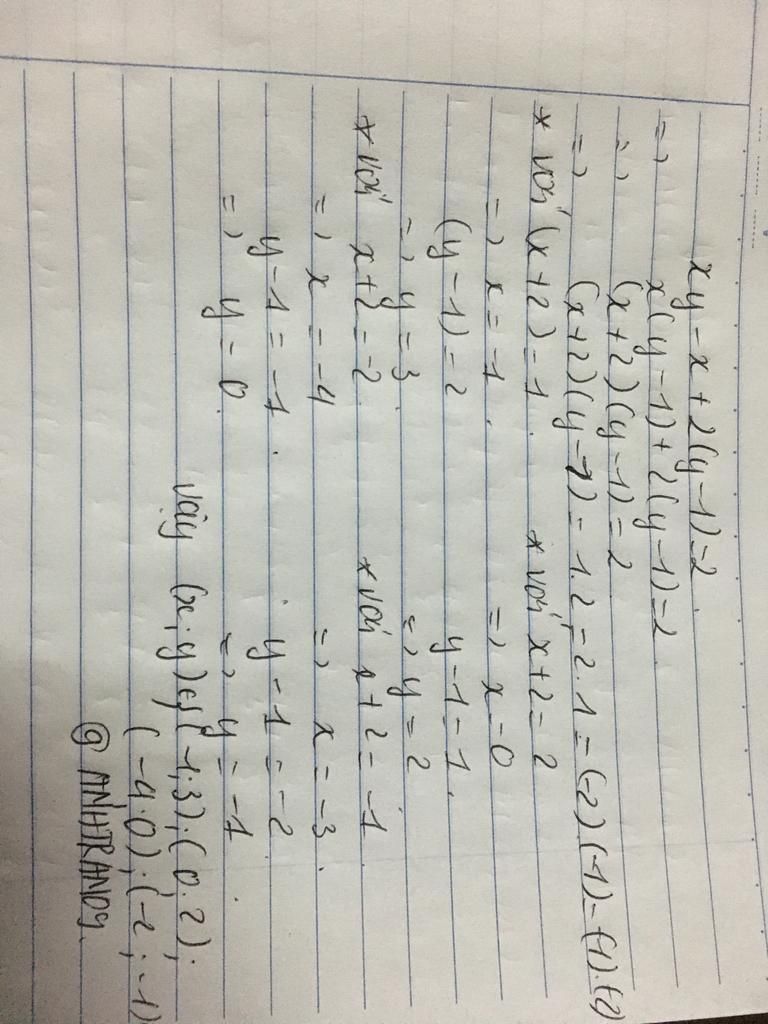 xy - x + 2(y-1) = 2
=> x(y-1) + 2(y-1) = 2
=> (x+2)(y-1) = 2
=> (x+2)(y-1) = 1.2 = 2.1 = (-2)(-1) = (-1).(-2)
* với (x+2) = 1. * với x+2 = 2
=> x = -1. => x = 0
(y-1) = 2 y-1 = 1.
=> y = 3. => y = 2
* với x+2 = -2 * với x+2 = -1.
=> x = -4 => x = -3.
y-1 = -1. y-1 = -2
=> y = 0 => y = -1.
Vậy (x;y) ∈ {(-1;3); (0;2);
(-4;0); (-2;-1)
@ANHTRANG4.